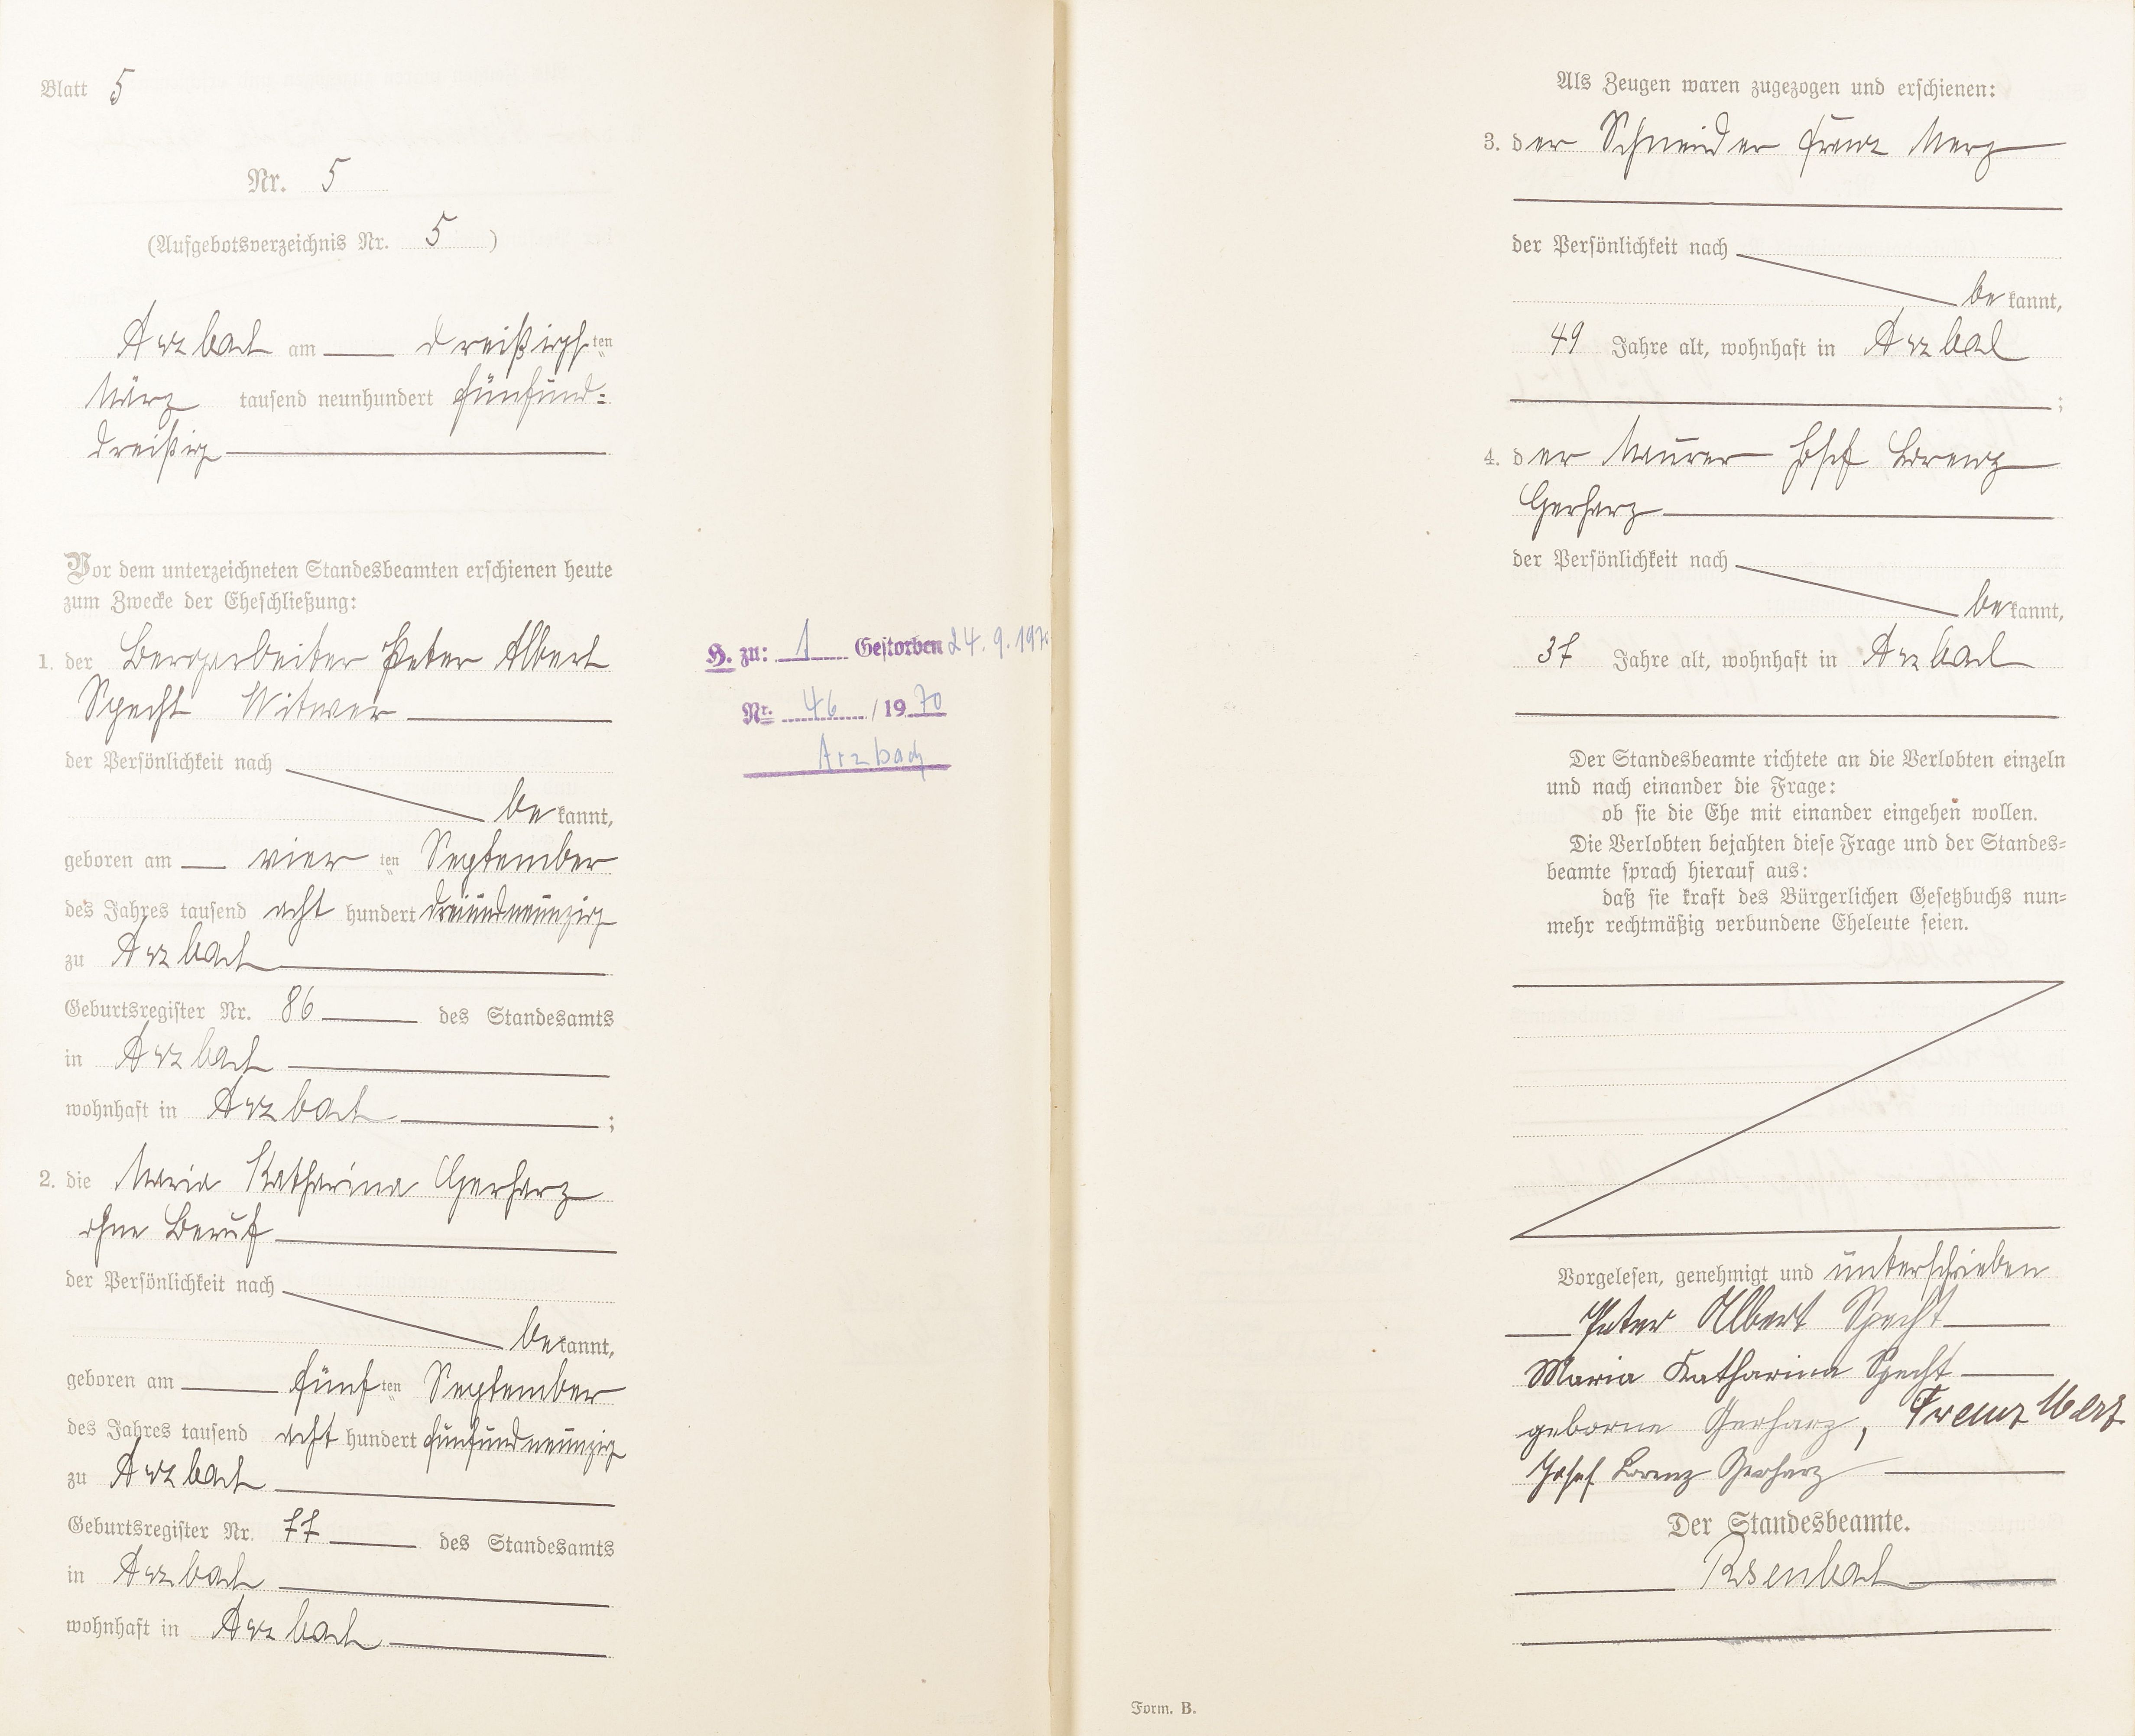 Blatt 5
Nr. 5
(Aufgebotsverzeichnis Nr. 5)
Arzbach am dreißigsten
März tausend neunhundert fünfund=
dreißig
Vor dem unterzeichneten Standesbeamten erschienen heute
zum Zwecke der Eheschließung:
1. der Bergarbeiter Peter Albert
Specht Witwer
der Persönlichkeit nach
be kannt,
geboren am vier ten September
des Jahres tausend acht hundert dreiundneunzig
zu Arzbach
Geburtsregister Nr. 86 des Standesamts
in Arzbach
wohnhaft in Arzbach ;
2. die Maria Katharina Gerharz
ohne Beruf
der Persönlichkeit nach
be kannt,
geboren am fünf ten September
des Jahres tausend acht hundert fünfundneunzig
zu Arzbach
Geburtsregister Nr. 77 des Standesamts
in Arzbach
wohnhaft in Arzbach
H. zu: 1 Gestorben 24. 9. 197
Nr. 46 / 1970
Arzbach
Als Zeugen waren zugezogen und erschienen:
3. der Schneider Franz Merz
der Persönlichkeit nach
be kannt,
49 Jahre alt, wohnhaft in Arzbach
;
4. der Maurer Josef Lorenz
Gerharz
der Persönlichkeit nach
be kannt,
37 Jahre alt, wohnhaft in Arzbach
Der Standesbeamte richtete an die Verlobten einzeln
und nach einander die Frage:
ob sie die Ehe mit einander eingehen wollen.
Die Verlobten bejahten diese Frage und der Standes=
beamte sprach hierauf aus:
daß sie kraft des Bürgerlichen Gesetzbuchs nun=
mehr rechtmäßig verbundene Eheleute seien.
Vorgelesen, genehmigt und unterschrieben
Peter Albert Specht
Maria Katharina Specht
geborne Gerharz, Franz Merz
Josef Lorenz Gerharz
Der Standesbeamte.
Form. B.